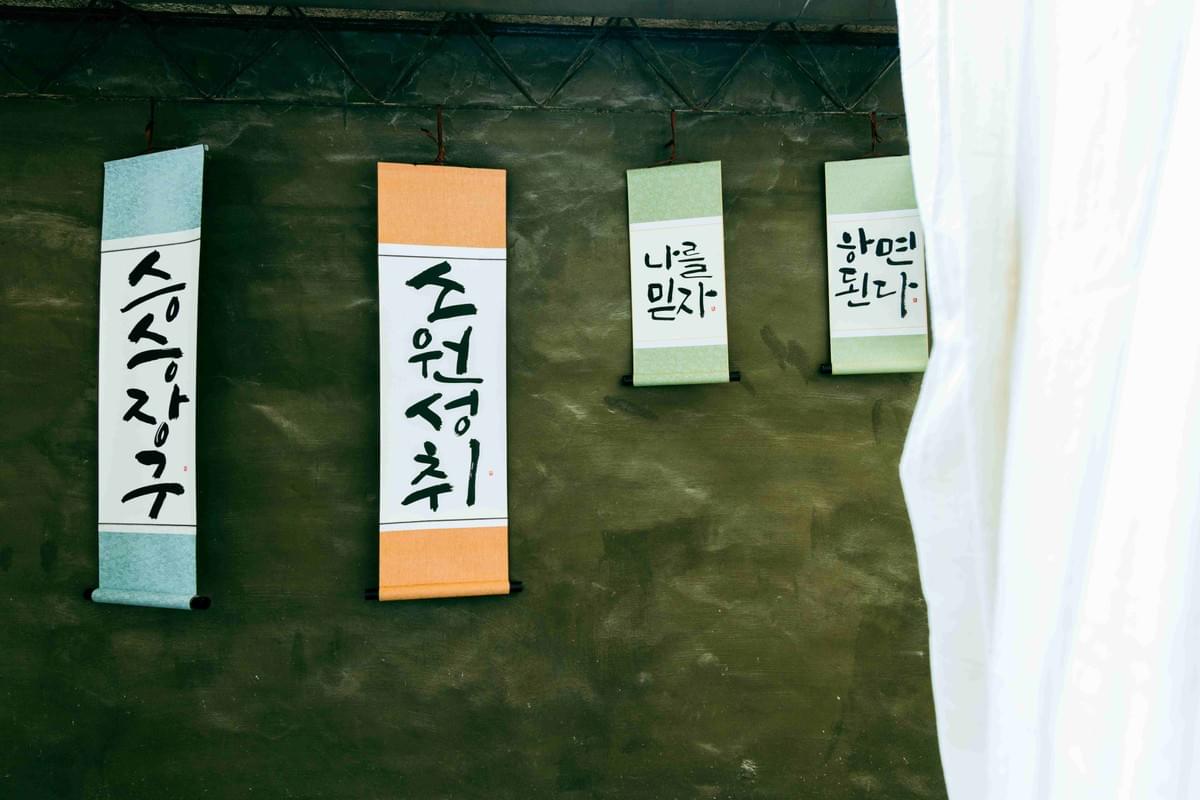 승승장구
소원성취
나를
믿자
하면
된다